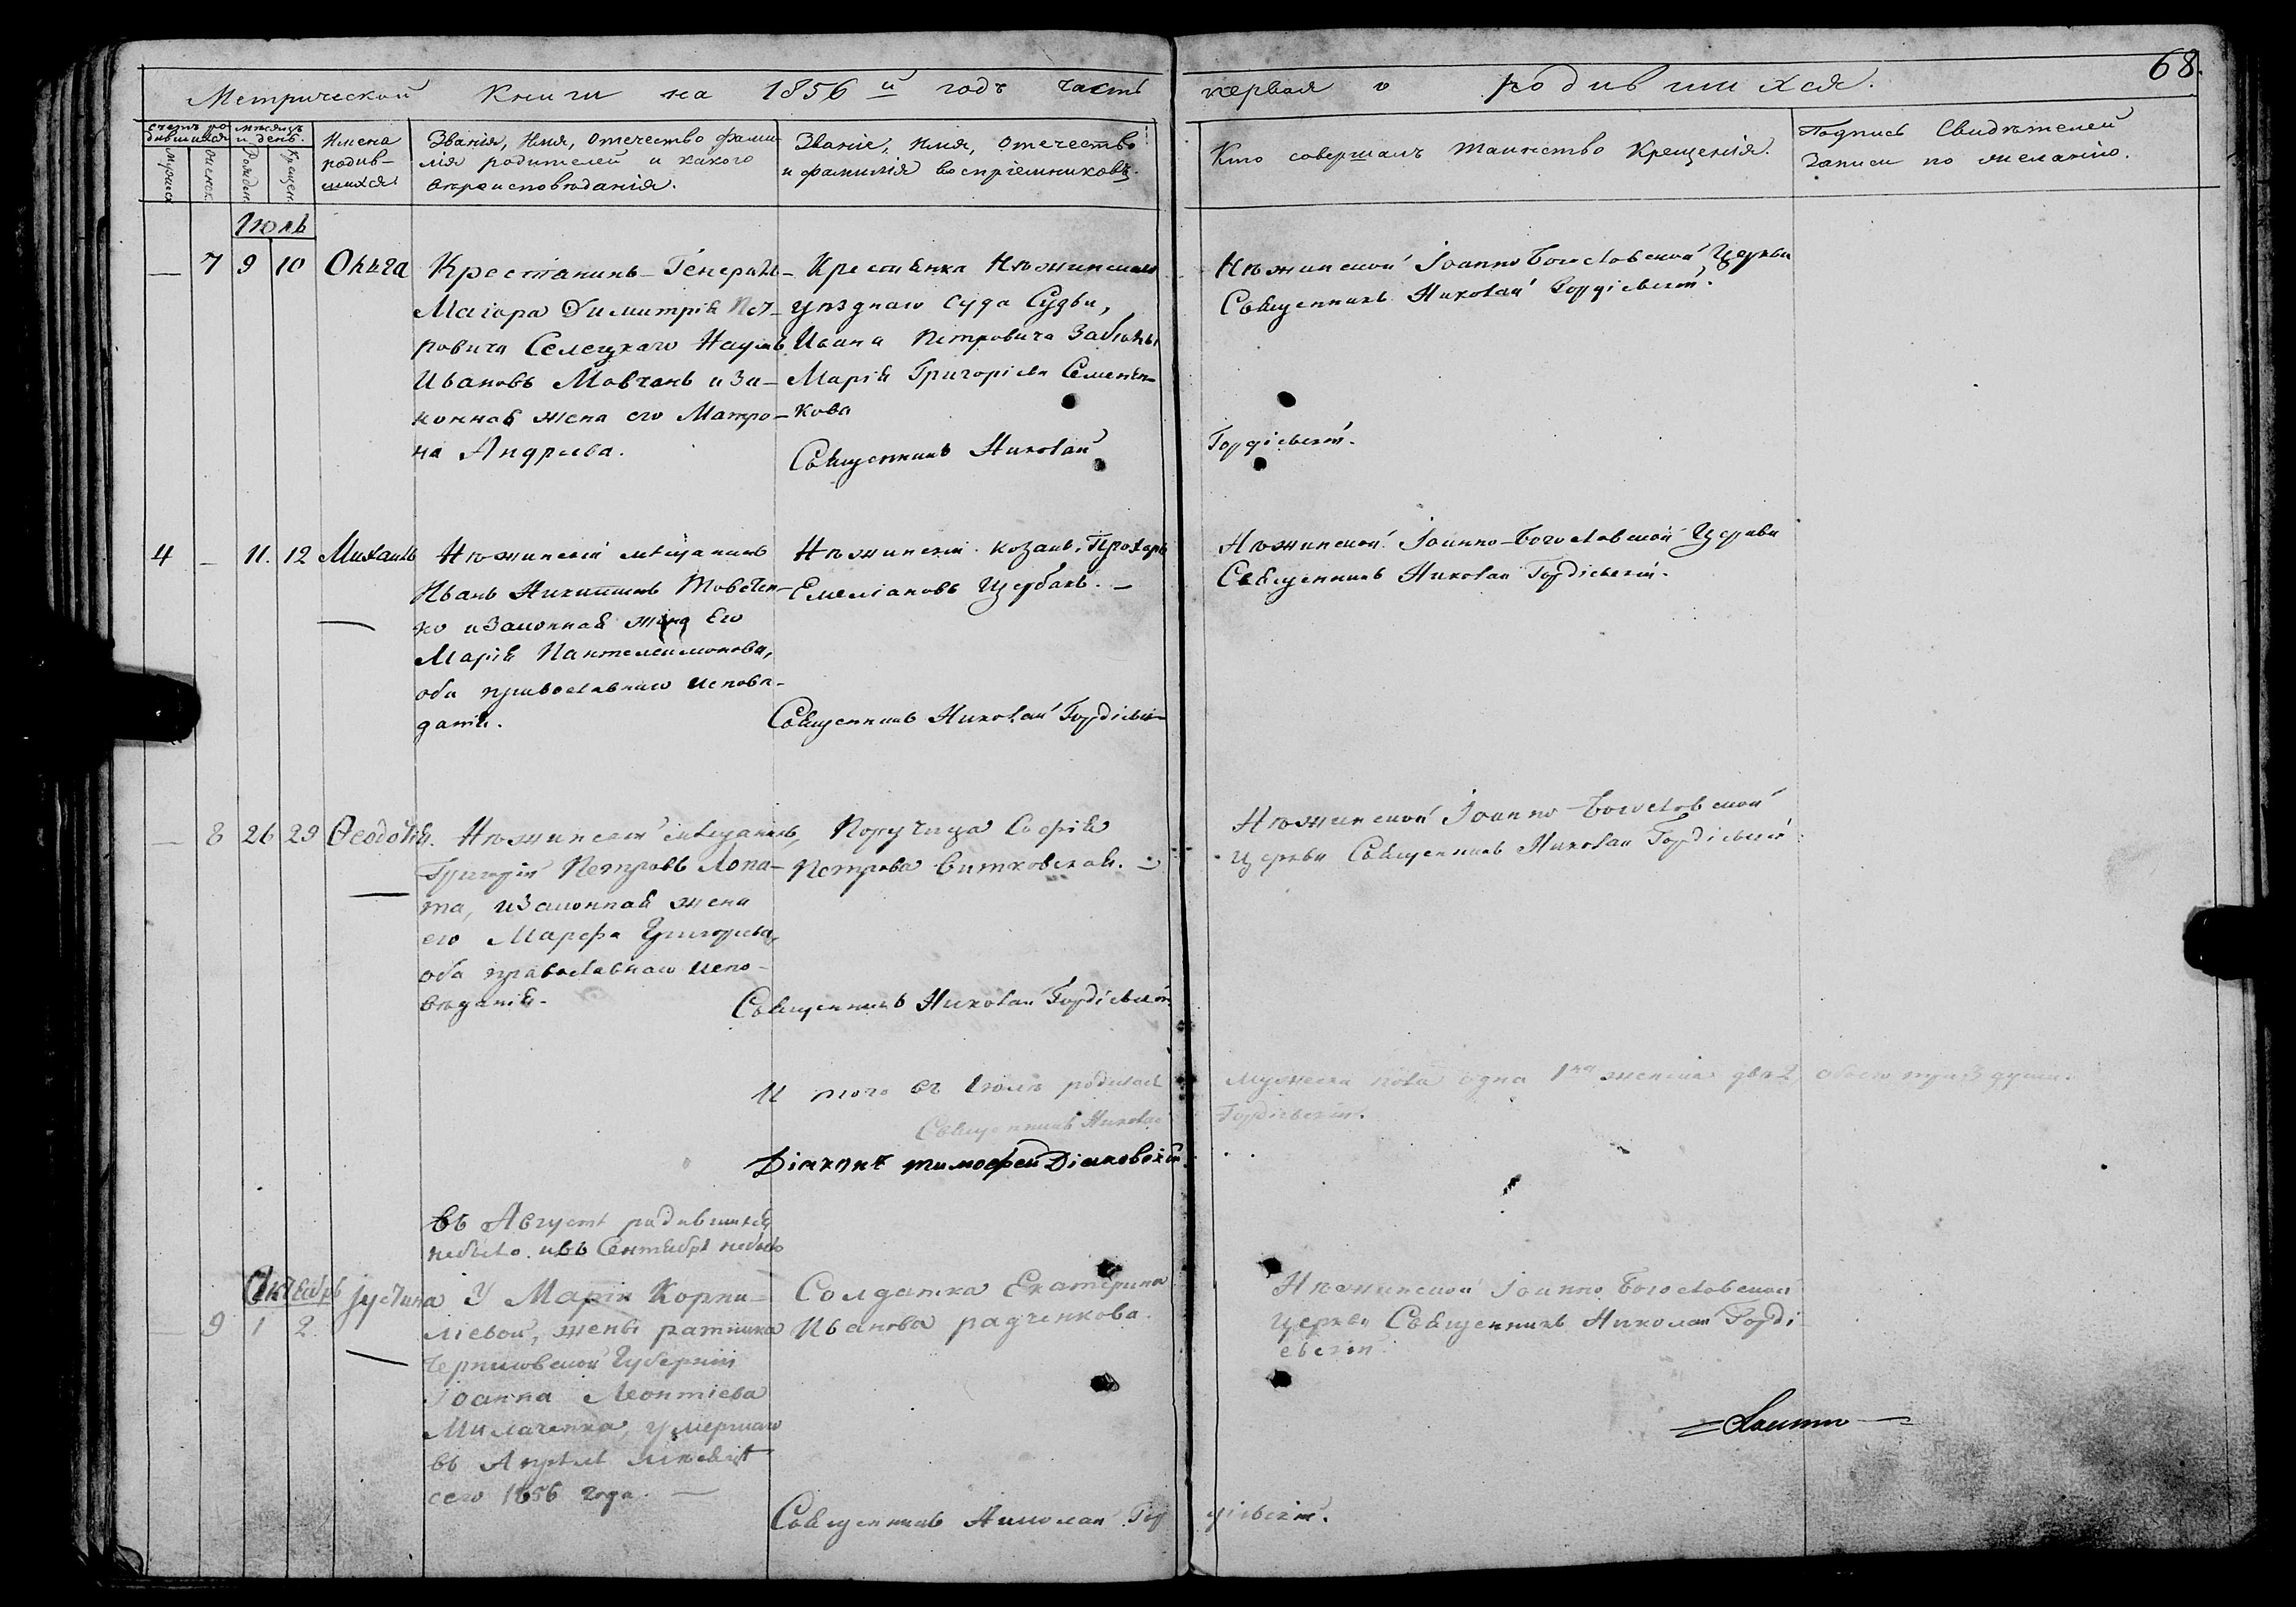 68.
Метрической Книги на 1856й годъ часть первая о родившихся.
счетъ родившихся
мѣсяцъ и день.
мужеск
женск.
Рожден.
Крещен.
Имена родив-
шихся
Званія, Имя, Отечество фами-
лія родителей и какого
вѣроисповѣданія.
Званіе, имя, отечество
и фамилія воспріемниковъ.
Кто совершалъ таинство Крещенія.
Подпись Свидѣтелей
записи по желанію.
Іюль
— 7 9 10 Ольга
Крестянинъ Генералъ-
Маіора Димитрія Пет-
ровича Селецкаго Наумъ
Ивановъ Мовчанъ и за-
конная жена его Матро-
на Андреева.
Крестьянка Нѣжинскаго
уѣзднаго суда Судьи,
Ивана Петровича Забѣлы
Марія Григоріева Семенен-
кова
Нѣжинской Іоанно Богословской Церкви
Священникъ Николай Гордіевскій.
Священникъ Николай Гордіевскій.
4 — 11. 12 Михаилъ
Нѣжинскій мѣщанинъ
Иванъ Никитинъ Товстен-
ко и законная жена Его
Марія Пантелеимонова,
оба православнаго испове-
данія.
Нѣжинскій козакъ Прохоръ
Емеліановъ Щербакъ. —
Нѣжинской Іоанно-Богословской Церкви
Священникъ Николай Гордіевскій.
Священникъ Николай Гордіевскій
— 8 26 29 Ѳеодосія.
Нѣжинскій мѣщанинъ,
Григорій Петровъ Лопа-
та, и законная жена
его Марѳа Григорьева,
оба православнаго испо-
вѣданія.
Поручица Софія
Петрова Витковская. —
Нѣжинской Іоанно-Богословской
Церкви Священникъ Николай Гордіевскій
Священникъ Николай Гордіевскій
И того въ Іюлѣ родилось мужеска пола одна 1 женска двѣ 2 обоего три 3 души.
Священникъ Николай Гордіевскій.
Діаконъ Тимофей Діаковскій
въ Августѣ родившихся
небыло. и въ Сентябрѣ небыло
Октябрь
9 1 2 Іустина
У Маріи Корни-
ліевой, жены ратника
Черниговской Губерніи
Іоанна Леонтіева
Милаченка, умершаго
въ Апрѣлѣ мѣсяцѣ
сего 1856 года. —
Солдатка Екатерина
Иванова Радченкова.
Нѣжинской Іоанно Богословской
Церкви Священникъ Николай Горді
евскій
Священникъ Николай Гордіевскій.